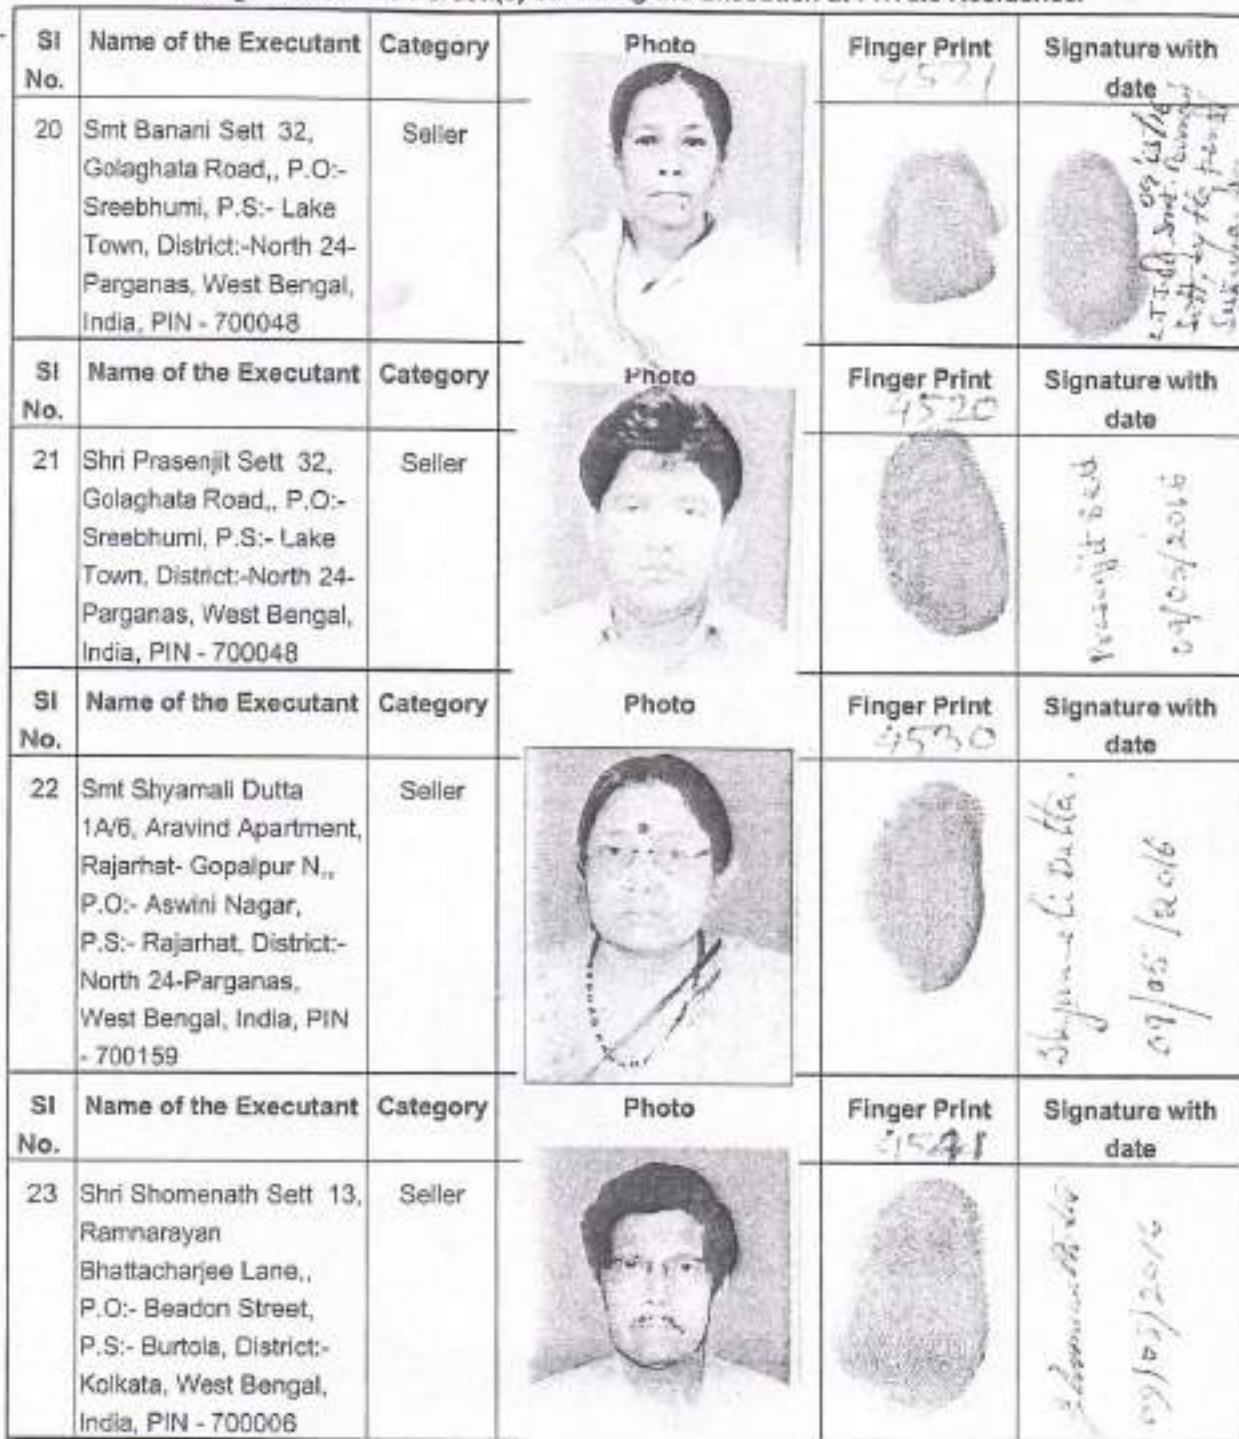 Execution at Private Residence.
Sl No. Name of the Executant Category Photo Finger Print Signature with date
4521
20 Smt Banani Sett 32,
Golaghata Road,, P.O:-
Sreebhumi, P.S:- Lake
Town, District:-North 24-
Parganas, West Bengal,
India, PIN - 700048
Seller
Sl No. Name of the Executant Category Photo Finger Print Signature with date
4520
21 Shri Prasenjit Sett 32,
Golaghata Road,, P.O:-
Sreebhumi, P.S:- Lake
Town, District:-North 24-
Parganas, West Bengal,
India, PIN - 700048
Seller
Prasenjit Sett
09/05/2016
Sl No. Name of the Executant Category Photo Finger Print Signature with date
4530
22 Smt Shyamali Dutta
1A/6, Aravind Apartment,
Rajarhat- Gopalpur N,,
P.O:- Aswini Nagar,
P.S:- Rajarhat, District:-
North 24-Parganas,
West Bengal, India, PIN
- 700159
Seller
Shyamali Dutta.
09/05/2016
Sl No. Name of the Executant Category Photo Finger Print Signature with date
23 Shri Shomenath Sett 13,
Ramnarayan
Bhattacharjee Lane,,
P.O:- Beadon Street,
P.S:- Burtola, District:-
Kolkata, West Bengal,
India, PIN - 700006
Seller
09/05/2016